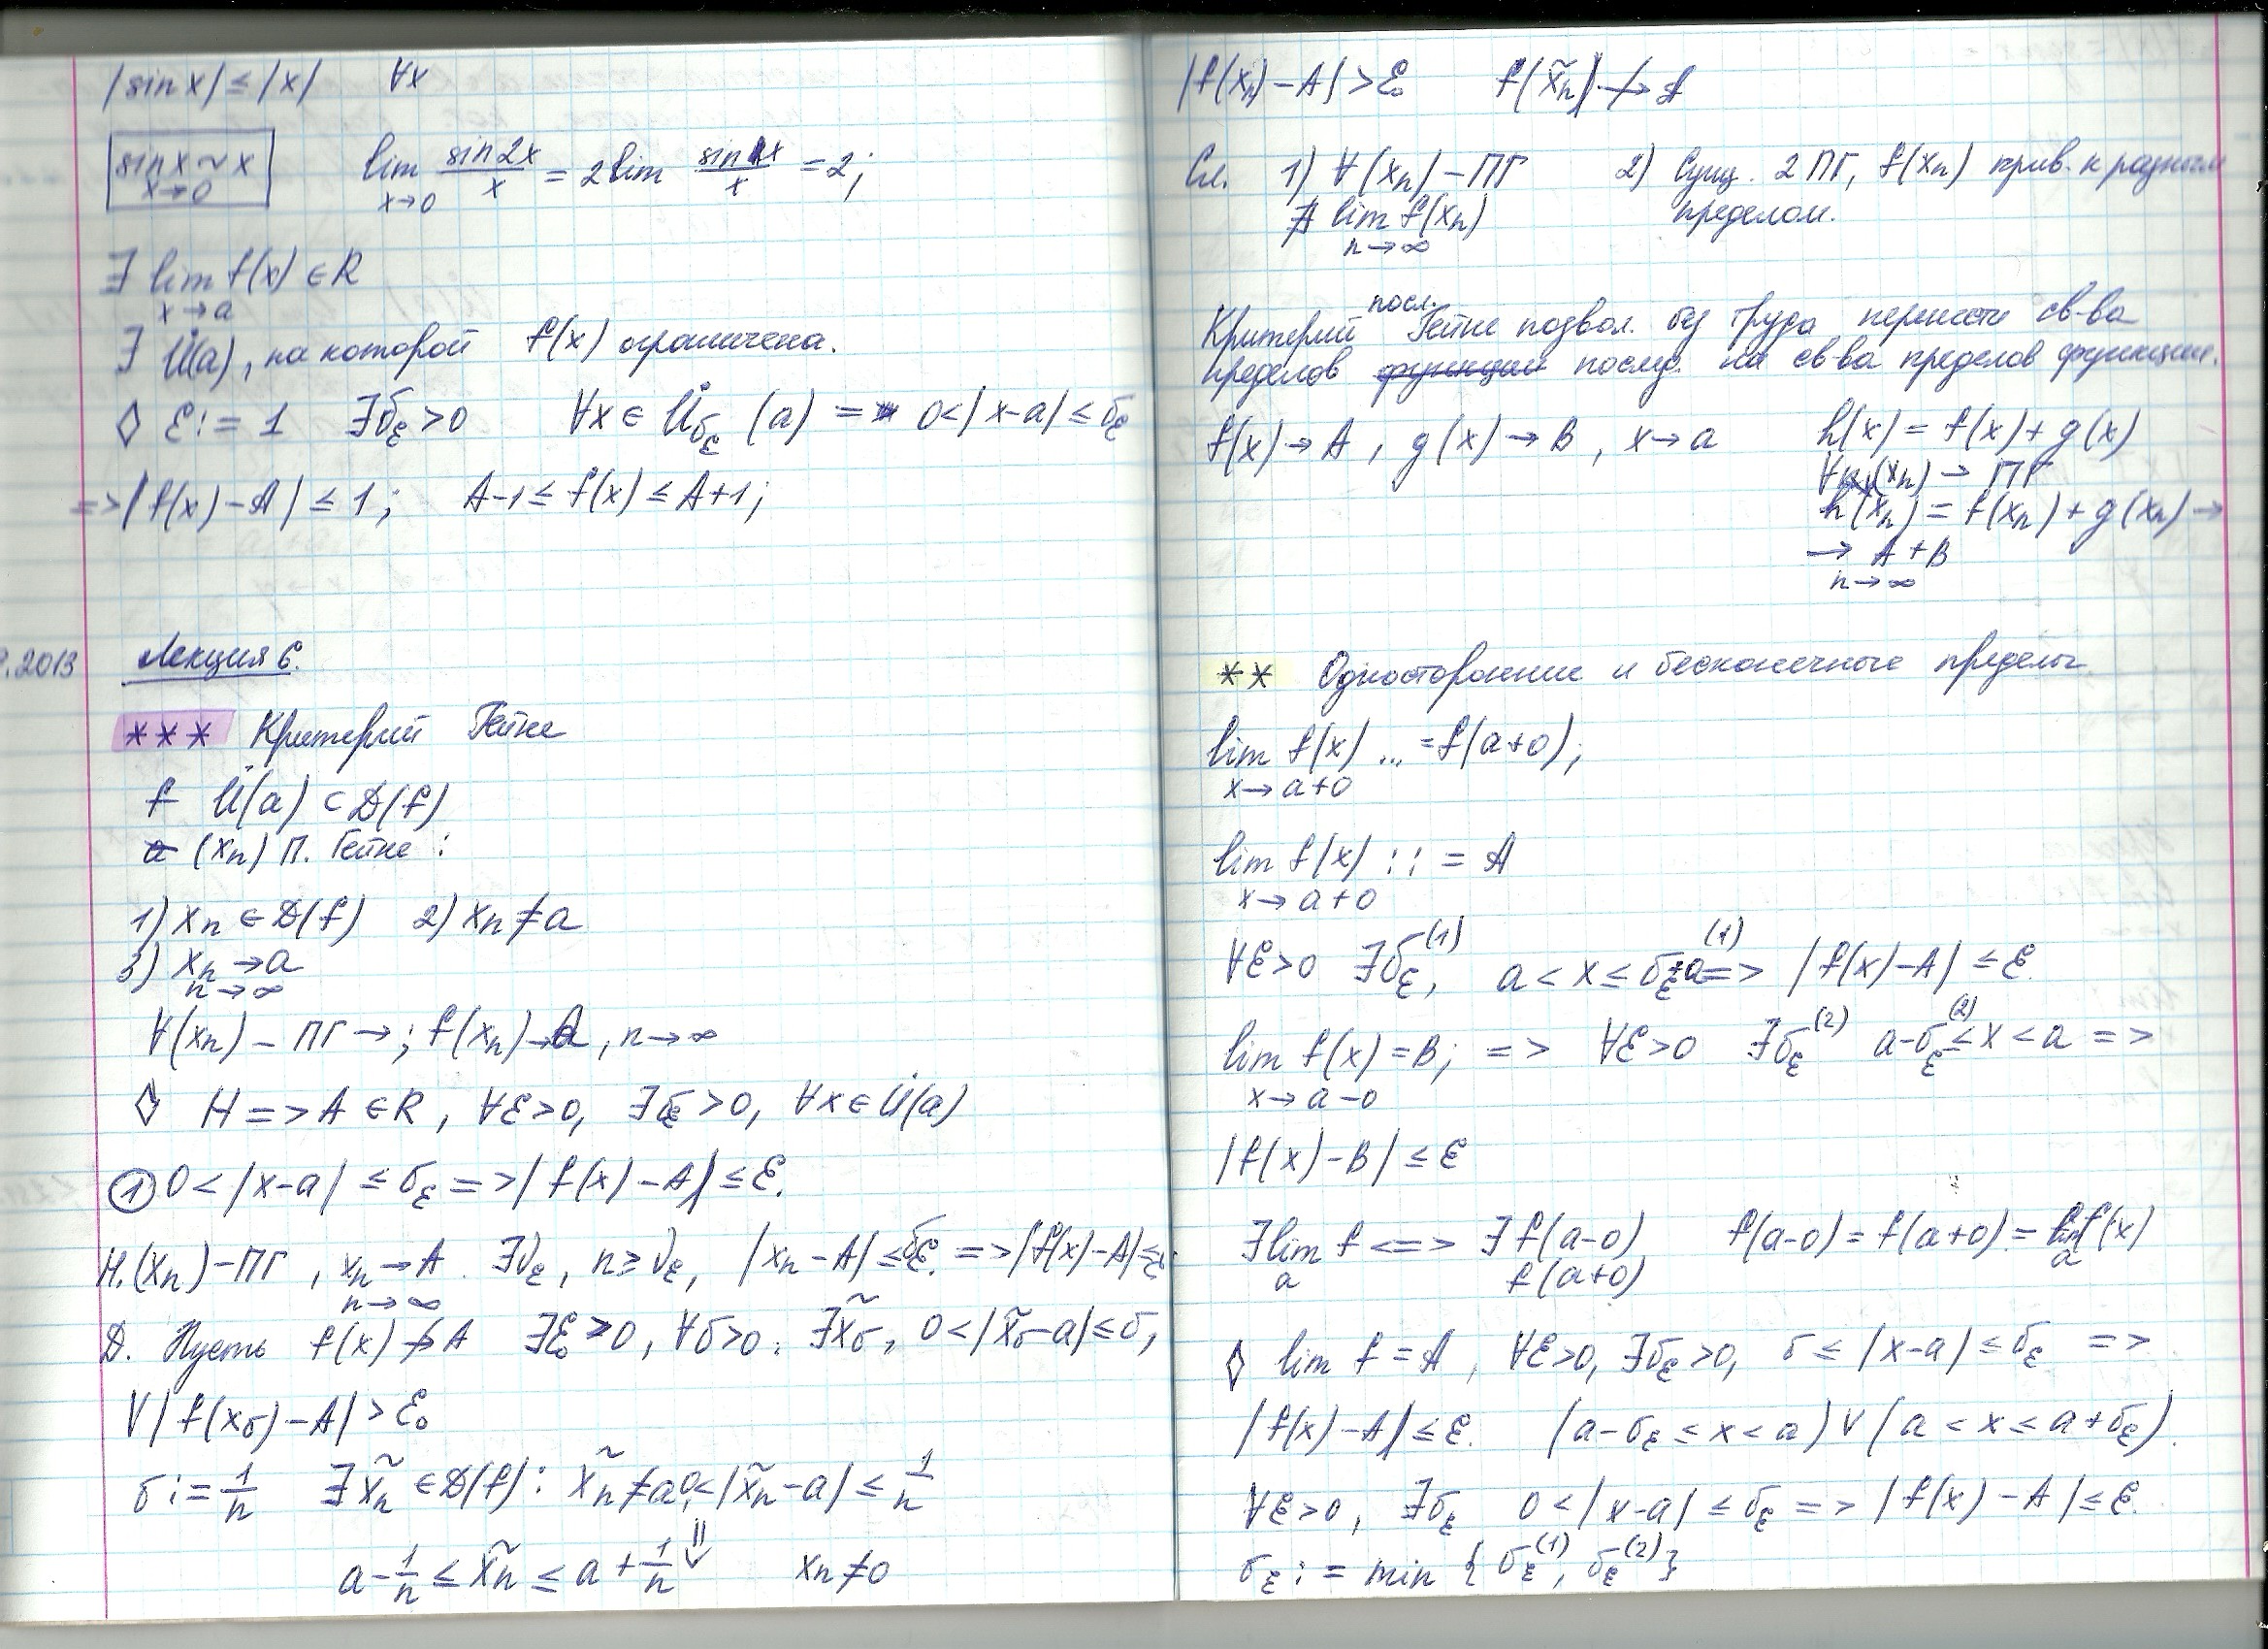 |sin x| ≤ |x| ∀x
sin x ~ x
x→0
lim sin2x/x = 2 lim sin x/x = 2;
x→0
∃ lim f(x) ∈ R
x→a
∃ U̇(a), на которой f(x) ограничена.
◊ ε := 1 ∃δ_ε > 0 ∀x ∈ U̇_δ_ε (a) = 0 < |x-a| ≤ δ_ε
=> |f(x) - A| ≤ 1; A-1 ≤ f(x) ≤ A+1;
.2013 Лекция 6.
*** Критерий Гейне
f U̇(a) ⊂ D(f)
(x_n) П. Гейне :
1) x_n ∈ D(f) 2) x_n ≠ a
3) x_n → a
n→∞
∀(x_n) – ПГ → ; f(x_n) → A, n→∞
◊ H => A ∈ R, ∀ε>0, ∃δ_ε >0, ∀x ∈ U̇(a)
① 0 < |x-a| ≤ δ_ε => |f(x) - A| ≤ ε.
Н. (x_n) – ПГ, x_n → A. ∃ν_ε, n ≥ ν_ε, |x_n - A| ≤ δ_ε. => |f(x) - A| ≤ ε
n→∞
Д. Пусть f(x) ↛ A ∃ε₀ > 0, ∀δ>0 : ∃x̃_δ, 0 < |x̃_δ - a| ≤ δ,
V |f(x_δ) - A| > ε₀
δ := 1/n ∃ x̃_n ∈ D(f) : x̃_n ≠ a, 0 < |x̃_n - a| ≤ 1/n
⇓
a - 1/n ≤ x̃_n ≤ a + 1/n x_n ≠ 0
|f(x_n) - A| > ε₀ f(x̃_n) ↛ A
Сл. 1) ∀(x_n) – ПГ 2) Сущ. 2 ПГ, f(x_n) прив. к разным
∄ lim f(x_n) пределом.
n→∞
посл.
Критерий Гейне позвол. без труда перенести св-ва
пределов функций послед. на св-ва пределов функции.
f(x) → A, g(x) → B, x → a h(x) = f(x) + g(x)
∀ (x_n) – ПГ
h(x_n) = f(x_n) + g(x_n) →
→ A + B
n→∞
** Односторонние и бесконечные пределы
lim f(x) ... = f(a+0);
x→a+0
lim f(x) :: = A
x→a+0
∀ε>0 ∃δ_ε^(1), a < x ≤ δ_ε^(1) + a => |f(x) - A| ≤ ε.
lim f(x) = B; => ∀ε>0 ∃δ_ε^(2) a - δ_ε^(2) ≤ x < a =>
x→a-0
|f(x) - B| ≤ ε
∃ lim f <=> ∃ f(a-0) f(a-0) = f(a+0) = lim f(x)
a f(a+0) a
◊ lim f = A, ∀ε>0, ∃δ_ε >0, δ ≤ |x-a| ≤ δ_ε =>
|f(x) - A| ≤ ε. (a - δ_ε ≤ x < a) ∨ (a < x ≤ a + δ_ε).
∀ε>0, ∃δ_ε 0 < |x-a| ≤ δ_ε => |f(x) - A| ≤ ε.
δ_ε := min {δ_ε^(1), δ_ε^(2)}